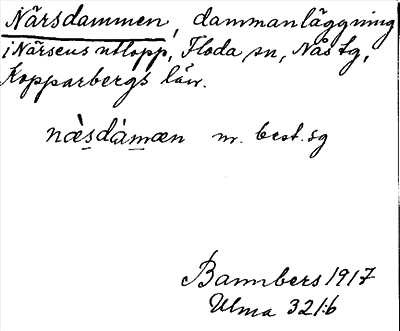 Närsdammen, dammanläggning
i Närsens utlopp, Floda sn, Nås tg,
Kopparbergs län.
næ̀sdàmæn m. best. sg
Bannbers 1917
Ulma 321:6